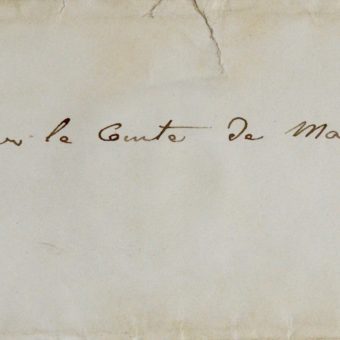 le Comte de Ma